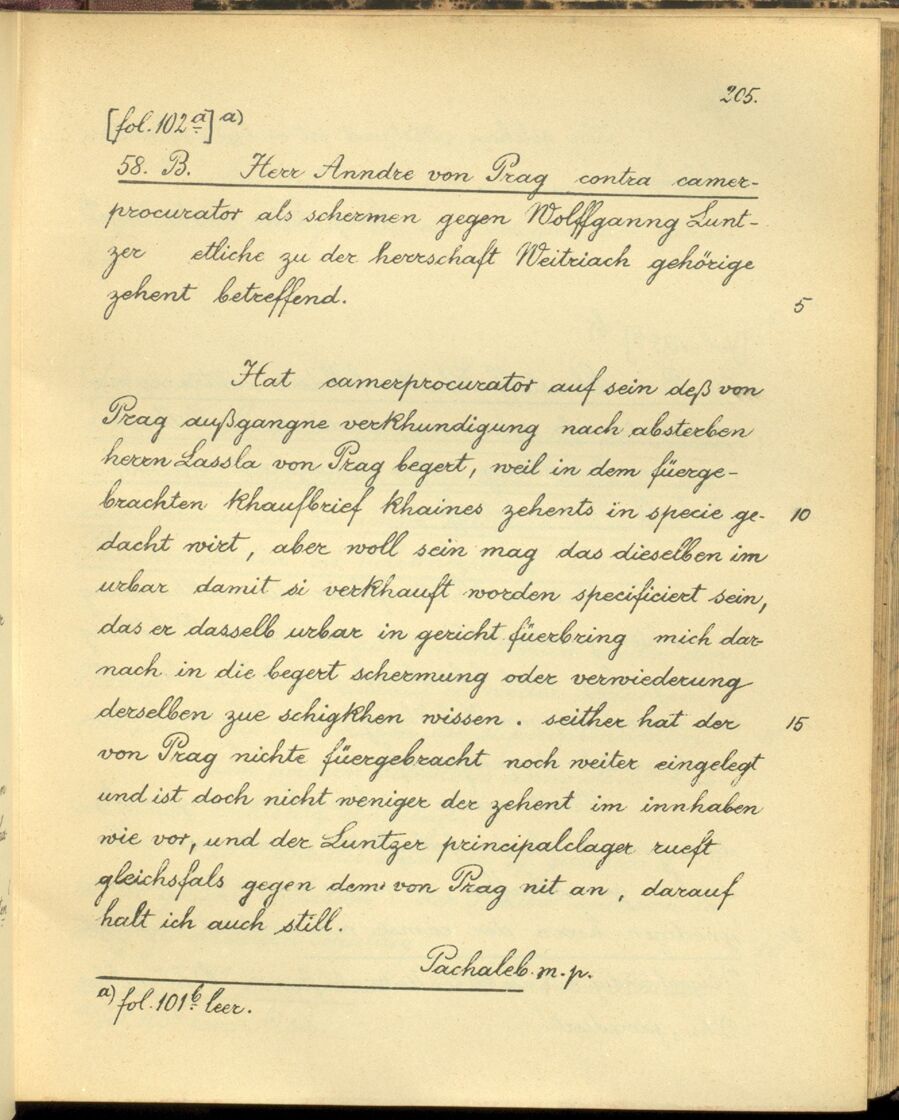 205.
[fol. 102 a] a)
58. B. Herr Anndre von Prag contra camer-
procurator als schermen gegen Wolffganng Lunt-
zer etliche zu der herrschaft Weitriach gehörige
zehent betreffend.
5
Hat camerprocurator auf sein deß von
Prag außgangne verkhundigung nach absterben
herrn Lassla von Prag begert, weil in dem füerge-
brachten khaufbrief khaines zehents in specie ge-
10
dacht wirt, aber woll sein mag das dieselben im
urbar damit si verkhauft worden specificiert sein,
das er dasselb urbar in gericht füerbring mich dar-
nach in die begert schermung oder verwiederung
derselben zue schigkhen wissen. seither hat der
15
von Prag nichte füergebracht noch weiter eingelegt
und ist doch nicht weniger der zehent im innhaben
wie vor, und der Luntzer principalclager rueft
gleichsfals gegen dem von Prag nit an, darauf
halt ich auch still.
Pachaleb. m. p.
a) fol. 101 b leer.